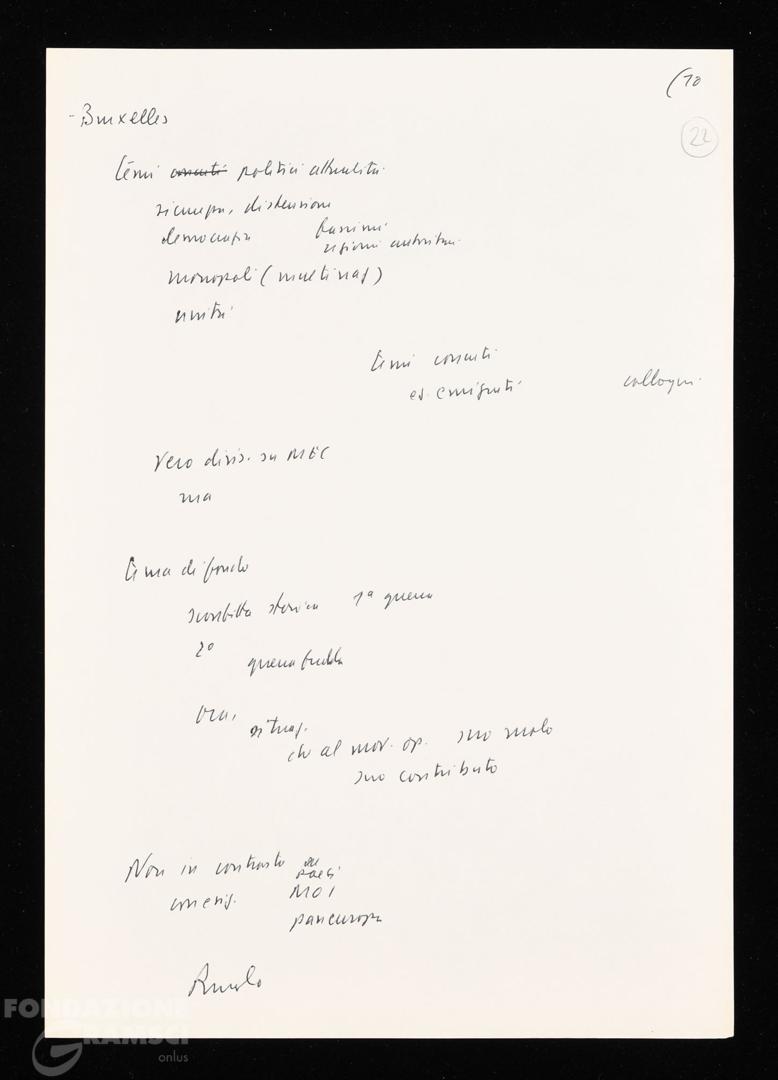 (10
22
- Bruxelles
temi concreti politici attualità
sicurezza, distensione
democrazia fascismi
regimi autoritari
monopoli (multinaz)
unità
temi concreti
es. emigrati colloqui
Vero divis. su MEC
ma
tema di fondo
sconfitta storica 1ª guerra
2º
guerra fredda
Ora,
situaz.
che al mov. op. suo ruolo
suo contributo
Non in contrasto
paesi
con esig. MOI
paneuropa
Ruolo
FONDAZIONE
GRAMSCI
onlus